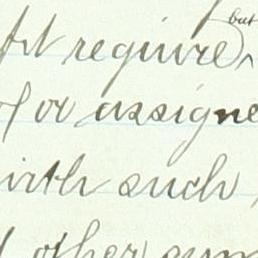 but
require,
or assigne
with such
other sum